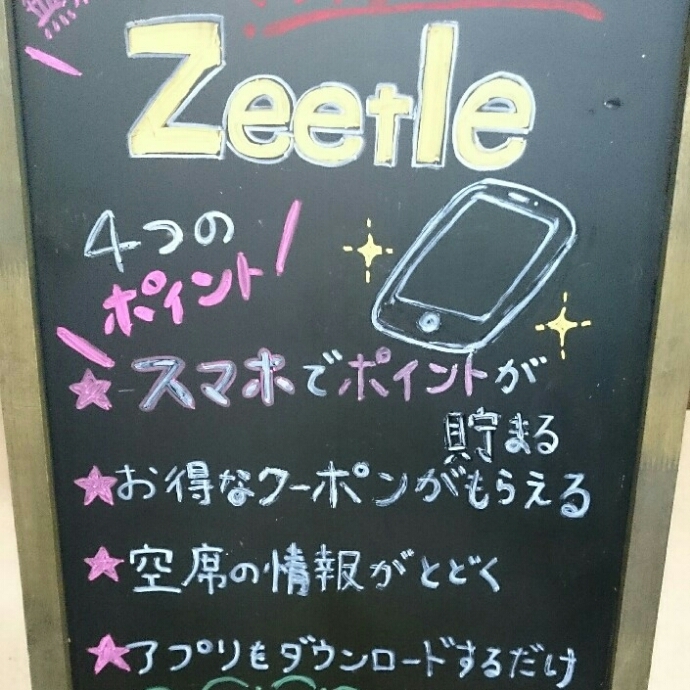 Zeetle
4つの
ポイント
スマホでポイントが
貯まる
お得なクーポンがもらえる
空席の情報がとどく
アプリをダウンロードするだけ